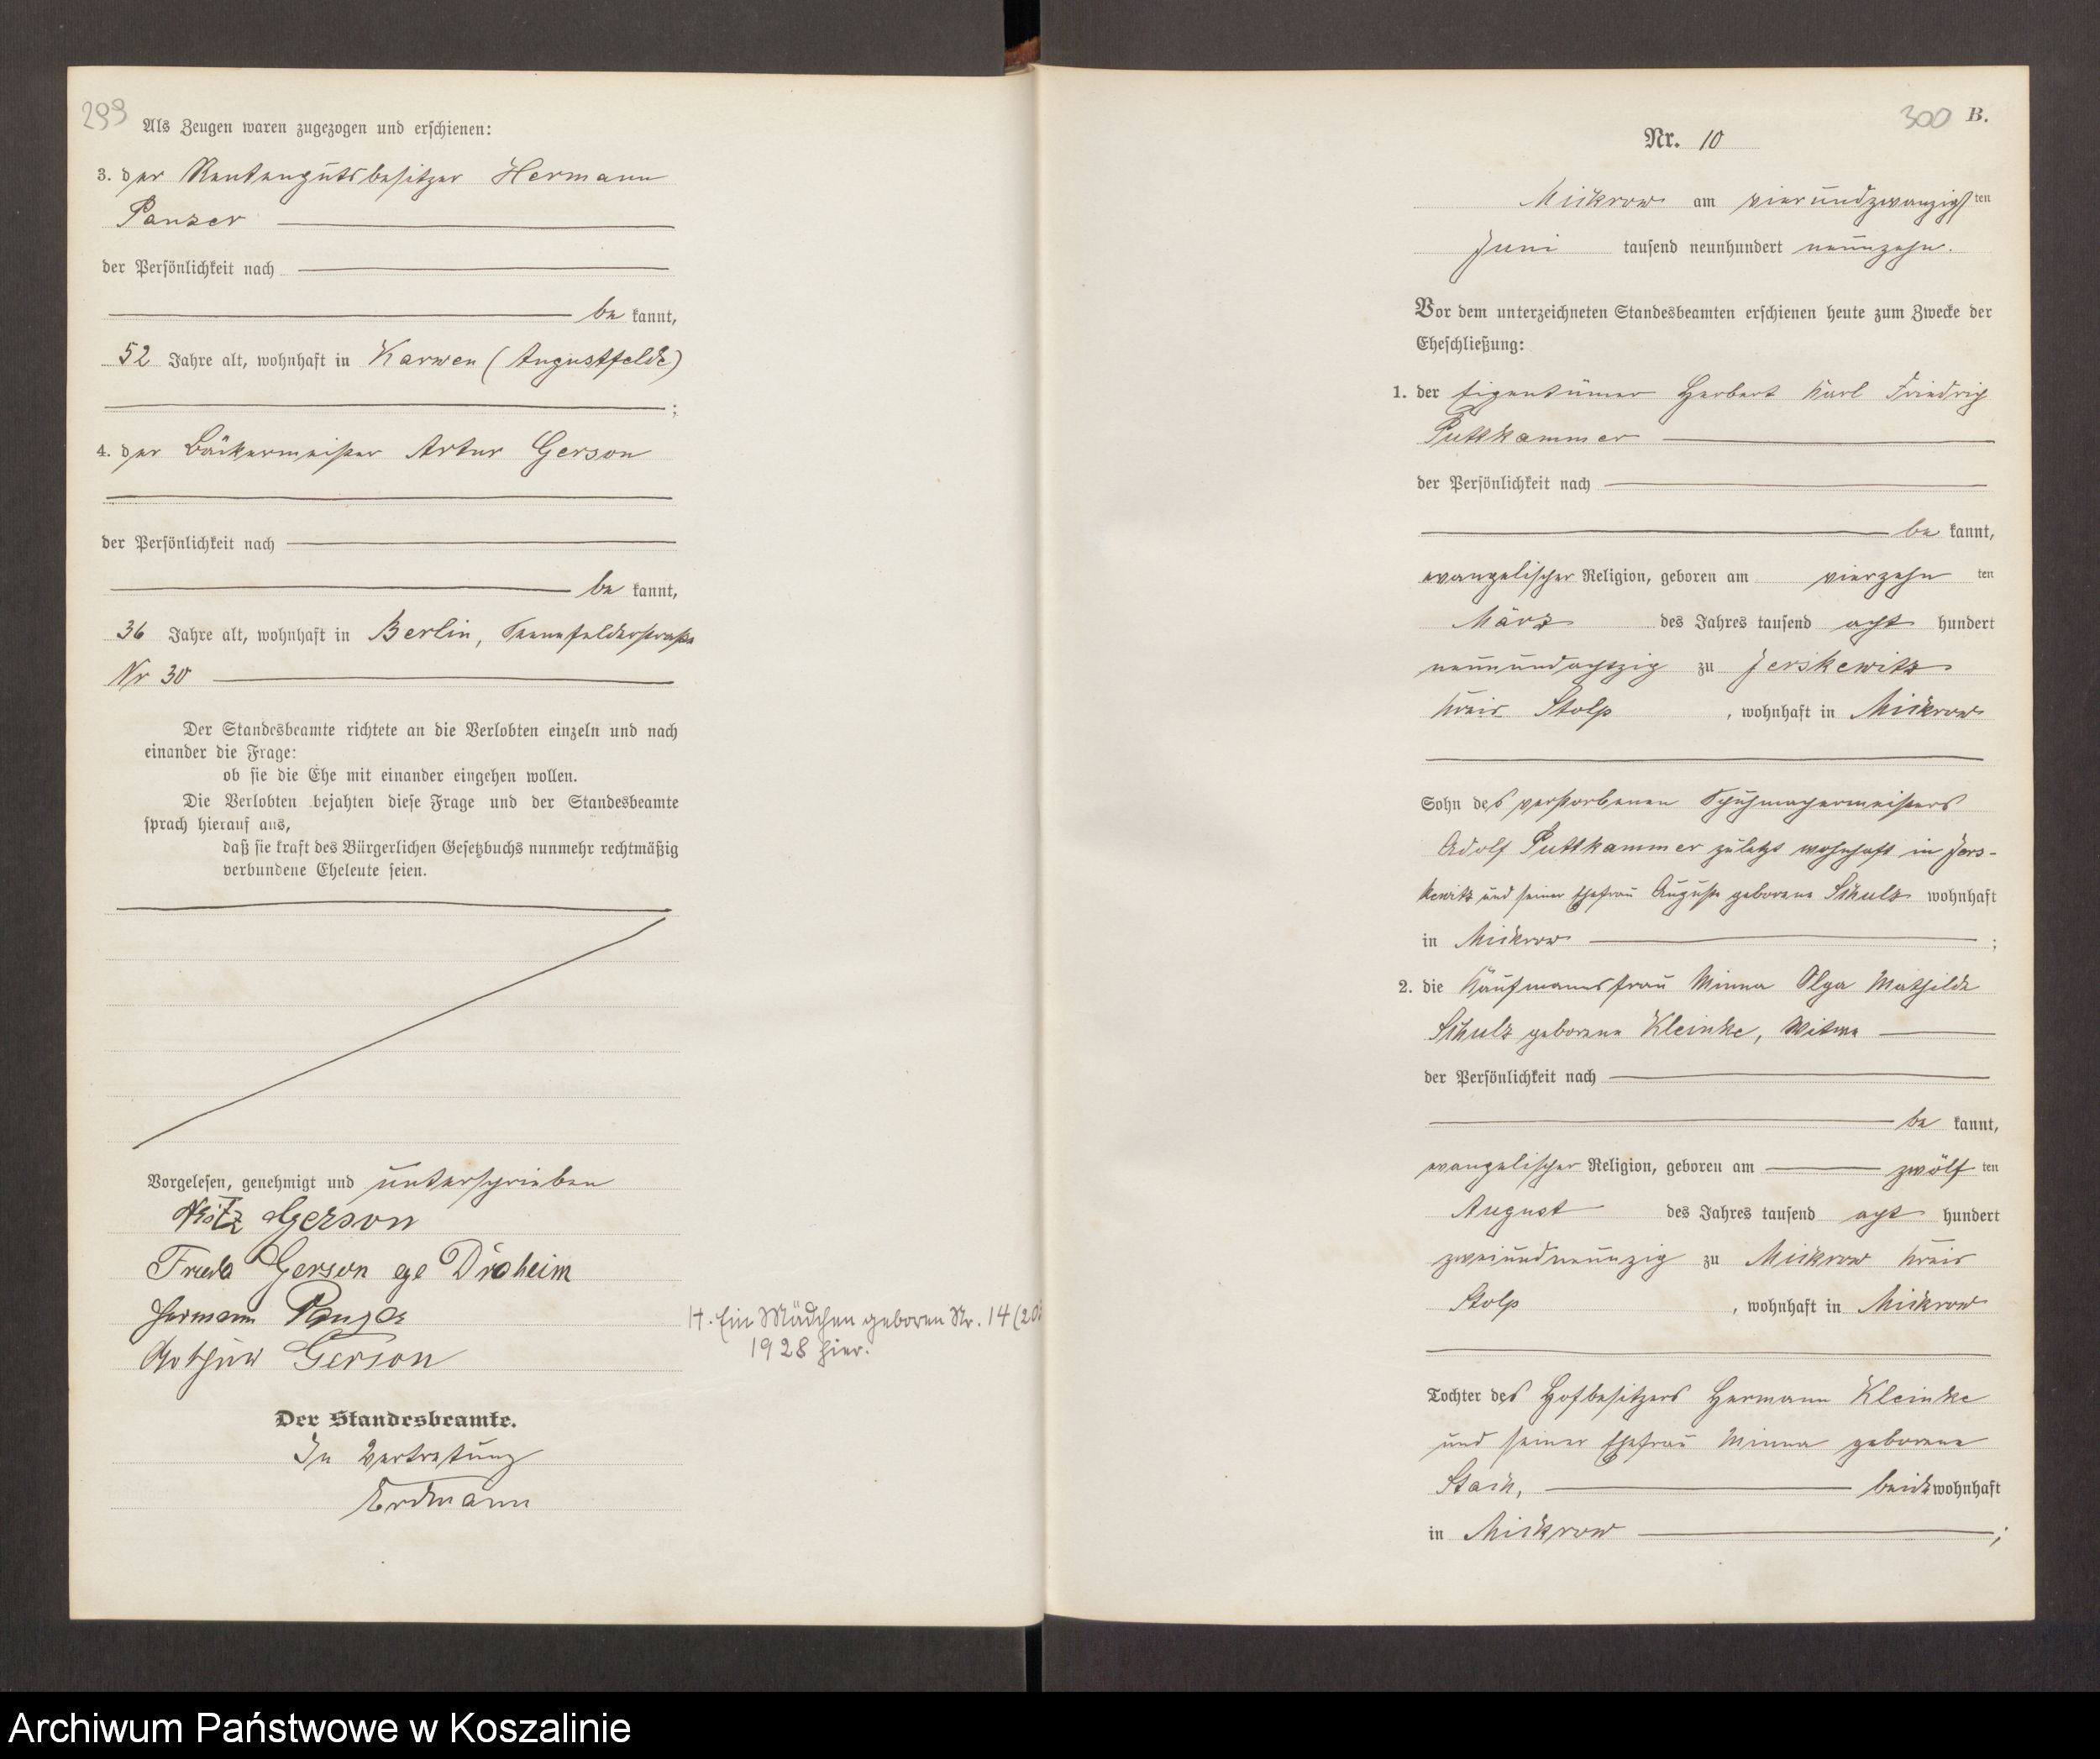 299
Als Zeugen waren zugezogen und erschienen:
3. der Rentengutsbesitzer Hermann
Panzer
der Persönlichkeit nach
be kannt,
52 Jahre alt, wohnhaft in Karwen (Augustfelde)
;
4. der Bäckermeister Artur Gerson
der Persönlichkeit nach
be kannt,
36 Jahre alt, wohnhaft in Berlin,
Nr 30
Der Standesbeamte richtete an die Verlobten einzeln und nach
einander die Frage:
ob sie die Ehe mit einander eingehen wollen.
Die Verlobten bejahten diese Frage und der Standesbeamte
sprach hierauf aus,
daß sie kraft des Bürgerlichen Gesetzbuchs nunmehr rechtmäßig
verbundene Eheleute seien.
Vorgelesen, genehmigt und unterschrieben
Fritz Gerson
Frieda Gerson ge Droheim
Hermann Panzer
Arthur Gerson
H. Ein Mädchen geboren Nr. 14
1928 hier.
Der Standesbeamte.
In Vertretung
Erdmann
300 B.
Nr. 10
Mickrow am vierundzwanzigsten
Juni tausend neunhundert neunzehn.
Vor dem unterzeichneten Standesbeamten erschienen heute zum Zwecke der
Eheschließung:
1. der Eigentümer Herbert Karl Friedrich
Puttkammer
der Persönlichkeit nach
be kannt,
evangelischer Religion, geboren am vierzehn ten
März des Jahres tausend acht hundert
neunundachtzig zu Jerskewitz
Kreis Stolp , wohnhaft in Mickrow
Sohn des verstorbenen Schuhmachermeisters
Adolf Puttkammer zuletzt wohnhaft in Jers-
kewitz und seiner Ehefrau Auguste geborene Schulz wohnhaft
in Mickrow ;
2. die Kaufmannsfrau Minna Olga Mathilde
Schulz geborene Kleinke, Witwe
der Persönlichkeit nach
be kannt,
evangelischer Religion, geboren am zwölf ten
August des Jahres tausend acht hundert
zweiundneunzig zu Mickrow Kreis
Stolp , wohnhaft in Mickrow
Tochter des Hofbesitzers Hermann Kleinke
und seiner Ehefrau Minna geborene
Stach, beide wohnhaft
in Mickrow ;
Archiwum Państwowe w Koszalinie